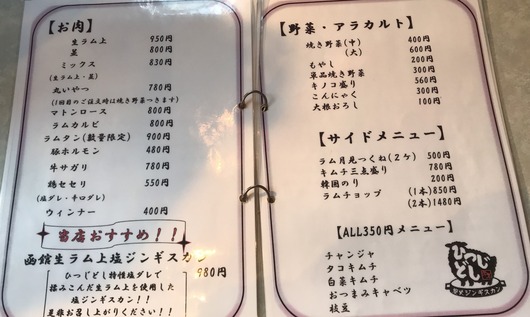 【お肉】
生ラム上 950円
並 800円
ミックス 830円
(生ラム上・並)
丸いやつ 780円
(1回目のご注文時は焼き野菜つきます)
マトンロース 800円
ラムカルビ 800円
ラムタン(数量限定) 900円
豚ホルモン 480円
牛サガリ 780円
鶏セセリ 550円
(塩ダレ・辛口ダレ)
ウィンナー 400円
当店おすすめ!!
函館生ラム上塩ジンギスカン
980円
ひつじどし特性塩ダレで
揉みこんだ生ラム上を使用した
塩ジンギスカン!!
是非お召し上がりください!!
【野菜・アラカルト】
焼き野菜(中) 400円
(大) 600円
もやし 200円
単品焼き野菜 300円
キノコ盛り 560円
こんにゃく 300円
大根おろし 100円
【サイドメニュー】
ラム月見つくね(2ケ) 500円
キムチ三点盛り 780円
韓国のり 200円
ラムチョップ (1本)850円
(2本)1480円
【ALL350円メニュー】
チャンジャ
タコキムチ
白菜キムチ
おつまみキャベツ
枝豆
ひつじどし
ジンギスカン